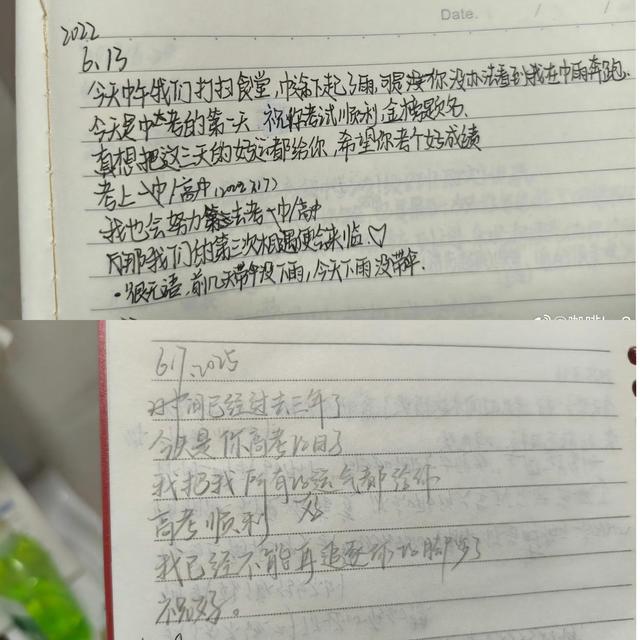 Date. / /
2022
6.13
今天中午我们打扫食堂,中途下起了雨,可是你没办法看到我在中雨奔跑.
今天是中考的第二天 祝你考试顺利,金榜题名.
真想把这三天的好运都给你,希望你考个好成绩
考上一中高中(2022317)
我也会努力去考一中高中
那我们的第三次相遇便会来临.♡
·很无语,前几天带伞没下雨,今天下雨没带伞.
6.7.2025
时间已经过去三年了
今天是你高考的日子
我把我所有的运气都给你
高考顺利
我已经不能再追逐你的脚步了
祝好。